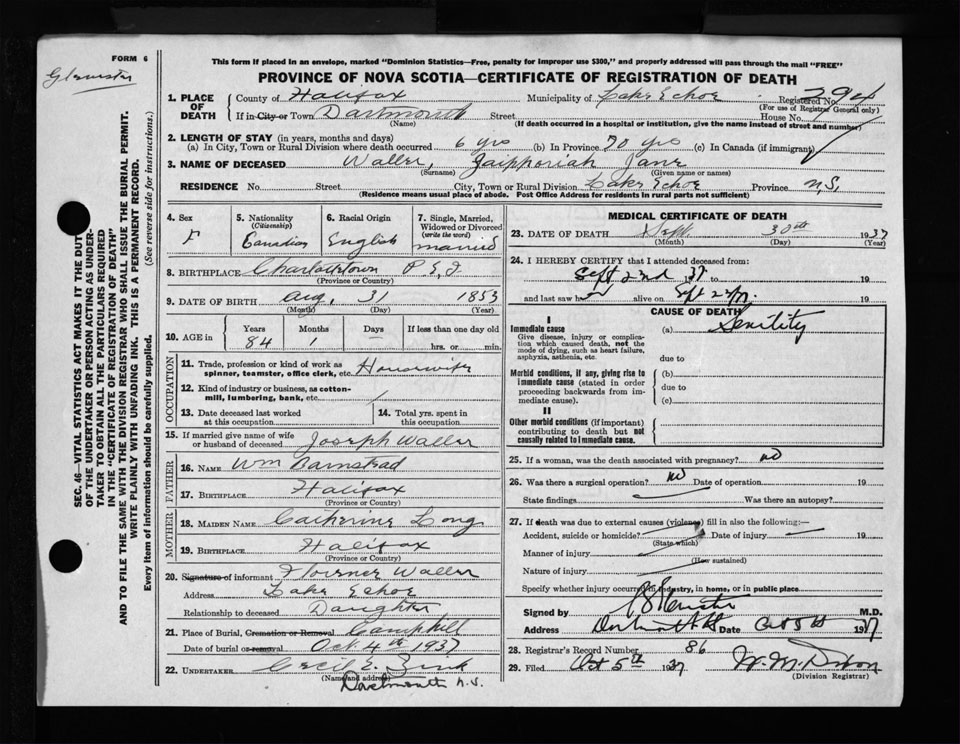 FORM 6
This form if placed in an envelope, marked "Dominion Statistics—Free, penalty for improper use $300," and properly addressed will pass through the mail "FREE"
PROVINCE OF NOVA SCOTIA—CERTIFICATE OF REGISTRATION OF DEATH
SEC. 46—VITAL STATISTICS ACT MAKES IT THE DUTY
OF THE UNDERTAKER OR PERSON ACTING AS UNDER-
TAKER TO OBTAIN ALL THE PARTICULARS REQUIRED
IN THE "CERTIFICATE OF REGISTRATION OF DEATH"
AND TO FILE THE SAME WITH THE DIVISION REGISTRAR WHO SHALL ISSUE THE BURIAL PERMIT.
WRITE PLAINLY WITH UNFADING INK. THIS IS A PERMANENT RECORD.
Every item of information should be carefully supplied. (See reverse side for instructions.)
1. PLACE OF DEATH County of Halifax Municipality of Lake Echoe Registered No. 294
(For use of Registrar General only)
If in City or Town Dartmouth Street House No.
(Name) (If death occurred in a hospital or institution, give the name instead of street and number)
2. LENGTH OF STAY (in years, months and days)
(a) In City, Town or Rural Division where death occurred 6 yrs (b) In Province 70 yrs (c) In Canada (if immigrant)
3. NAME OF DECEASED Waller, Jane
(Surname) (Given name or names)
RESIDENCE No. Street City, Town or Rural Division Lake Echoe Province N.S.
(Residence means usual place of abode. Post Office Address for residents in rural parts not sufficient)
4. Sex F
5. Nationality (Citizenship) Canadian
6. Racial Origin English
7. Single, Married, Widowed or Divorced (write the word) married
8. BIRTHPLACE Charlottetown P.E.I
(Province or Country)
9. DATE OF BIRTH Aug, 31 1853
(Month) (Day) (Year)
10. AGE in Years 84 Months 1 Days — If less than one day old
hrs. or min.
OCCUPATION
11. Trade, profession or kind of work as
spinner, teamster, office clerk, etc. Housewife
12. Kind of industry or business, as cotton-
mill, lumbering, bank, etc.
13. Date deceased last worked
at this occupation
14. Total yrs. spent in
this occupation
15. If married give name of wife
or husband of deceased Joseph Waller
FATHER
16. NAME Wm Barnstead
17. BIRTHPLACE Halifax
(Province or Country)
MOTHER
18. MAIDEN NAME Catherine Long
19. BIRTHPLACE Halifax
(Province or Country)
20. Signature of informant Waller
Address Lake Echoe
Relationship to deceased Daughter
21. Place of Burial, Cremation or Removal Camphill
Date of burial or removal Oct. 4th 1937
22. UNDERTAKER Cecil E. Zink
(Name and address)
Dartmouth N.S.
MEDICAL CERTIFICATE OF DEATH
23. DATE OF DEATH Sept. 30th 1937
(Month) (Day) (Year)
24. I HEREBY CERTIFY that I attended deceased from:
Sept 22nd 1937 to 19
and last saw h alive on Sept 22/37. 19
CAUSE OF DEATH
I
Immediate cause (a) Senility
Give disease, injury or complica-
tion which caused death, not the
mode of dying, such as heart failure,
asphyxia, asthenia, etc. due to
Morbid conditions, if any, giving rise to (b)
immediate cause (stated in order due to
proceeding backwards from im-
mediate cause). (c)
II
Other morbid conditions (if important)
contributing to death but not
causally related to immediate cause.
25. If a woman, was the death associated with pregnancy? no
26. Was there a surgical operation? no Date of operation 19
State findings Was there an autopsy?
27. If death was due to external causes (violence) fill in also the following:—
Accident, suicide or homicide? Date of injury 19
(State which)
Manner of injury
(How sustained)
Nature of injury
Specify whether injury occurred in industry, in home, or in public place
Signed by M.D.
Address Date Oct 5th 1937
28. Registrar's Record Number 86
29. Filed Oct 5th 1937
(Division Registrar)